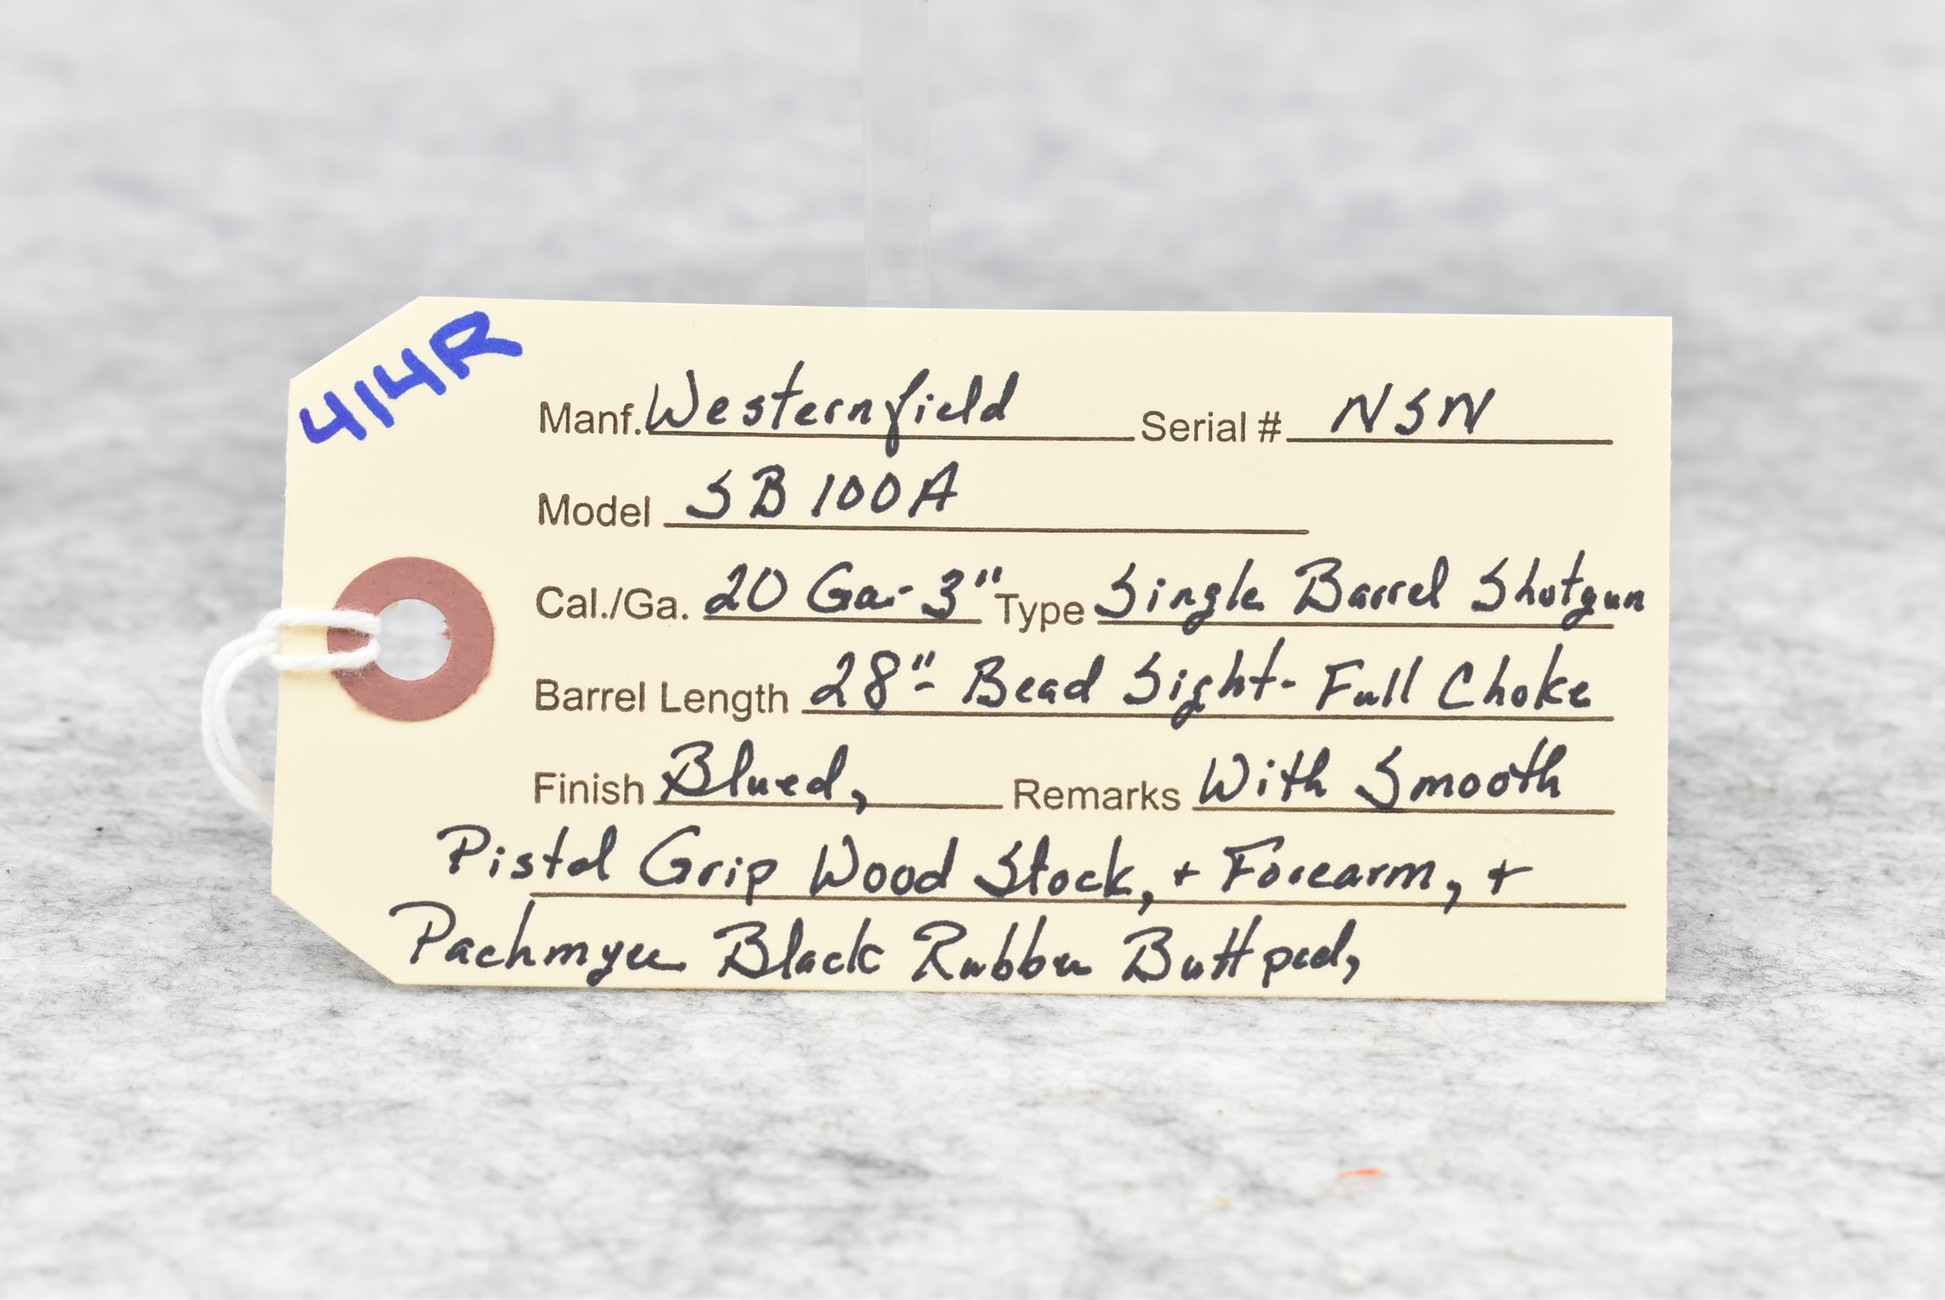 414R
Manf. Westernfield Serial # NSN
Model SB 100A
Cal./Ga. 20 Ga- 3" Type Single Barrel Shotgun
Barrel Length 28"- Bead Sight- Full Choke
Finish Blued, Remarks With Smooth
Pistol Grip Wood Stock, + Forearm, +
Pachmyer Black Rubber Buttpad,